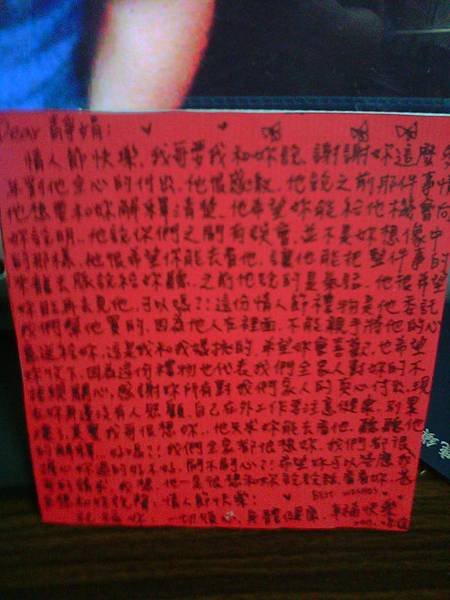 Dear 靜娟:
情人節快樂, 我哥要我和妳說, 謝謝妳這麼多
年對他全心的付出, 他很感激, 他說之前那件事情
他想要和妳解釋清楚, 他希望妳能給他機會向
妳說明, 他說你們之間有誤會, 並不是妳想像中
的那樣, 他很希望你能去看他, 讓他能把整件事的
來龍去脈說給妳聽, 之前他說的是氣話, 他很希望
妳能再去見他, 可以嗎?! 這份情人節禮物是他委託
我們幫他買的, 因為他人在裡面, 不能親手將他的心
意送給妳, 這是我和我媽挑的, 希望妳會喜歡, 也希望
妳收下, 因為這份禮物也代表我們全家人對妳的不
捨與關心, 感謝妳所有對我們家人的真心付出, 現
在妳身邊沒有人照顧, 自己在外工作要注意健康, 別累
壞了, 其實我哥很想妳, 他只求妳能去看他, 聽聽他
的解釋, 好嗎?! 我們全家都很想妳, 我們都很
關心妳過的好不好, 開不開心?! 希望妳可以答應我
哥的請求, 我想, 他一定很想和妳說說話, 看看妳,
想和妳說聲, 情人節快樂!
BEST WISHES
祝福妳: 一切順心 身體健康 幸福快樂